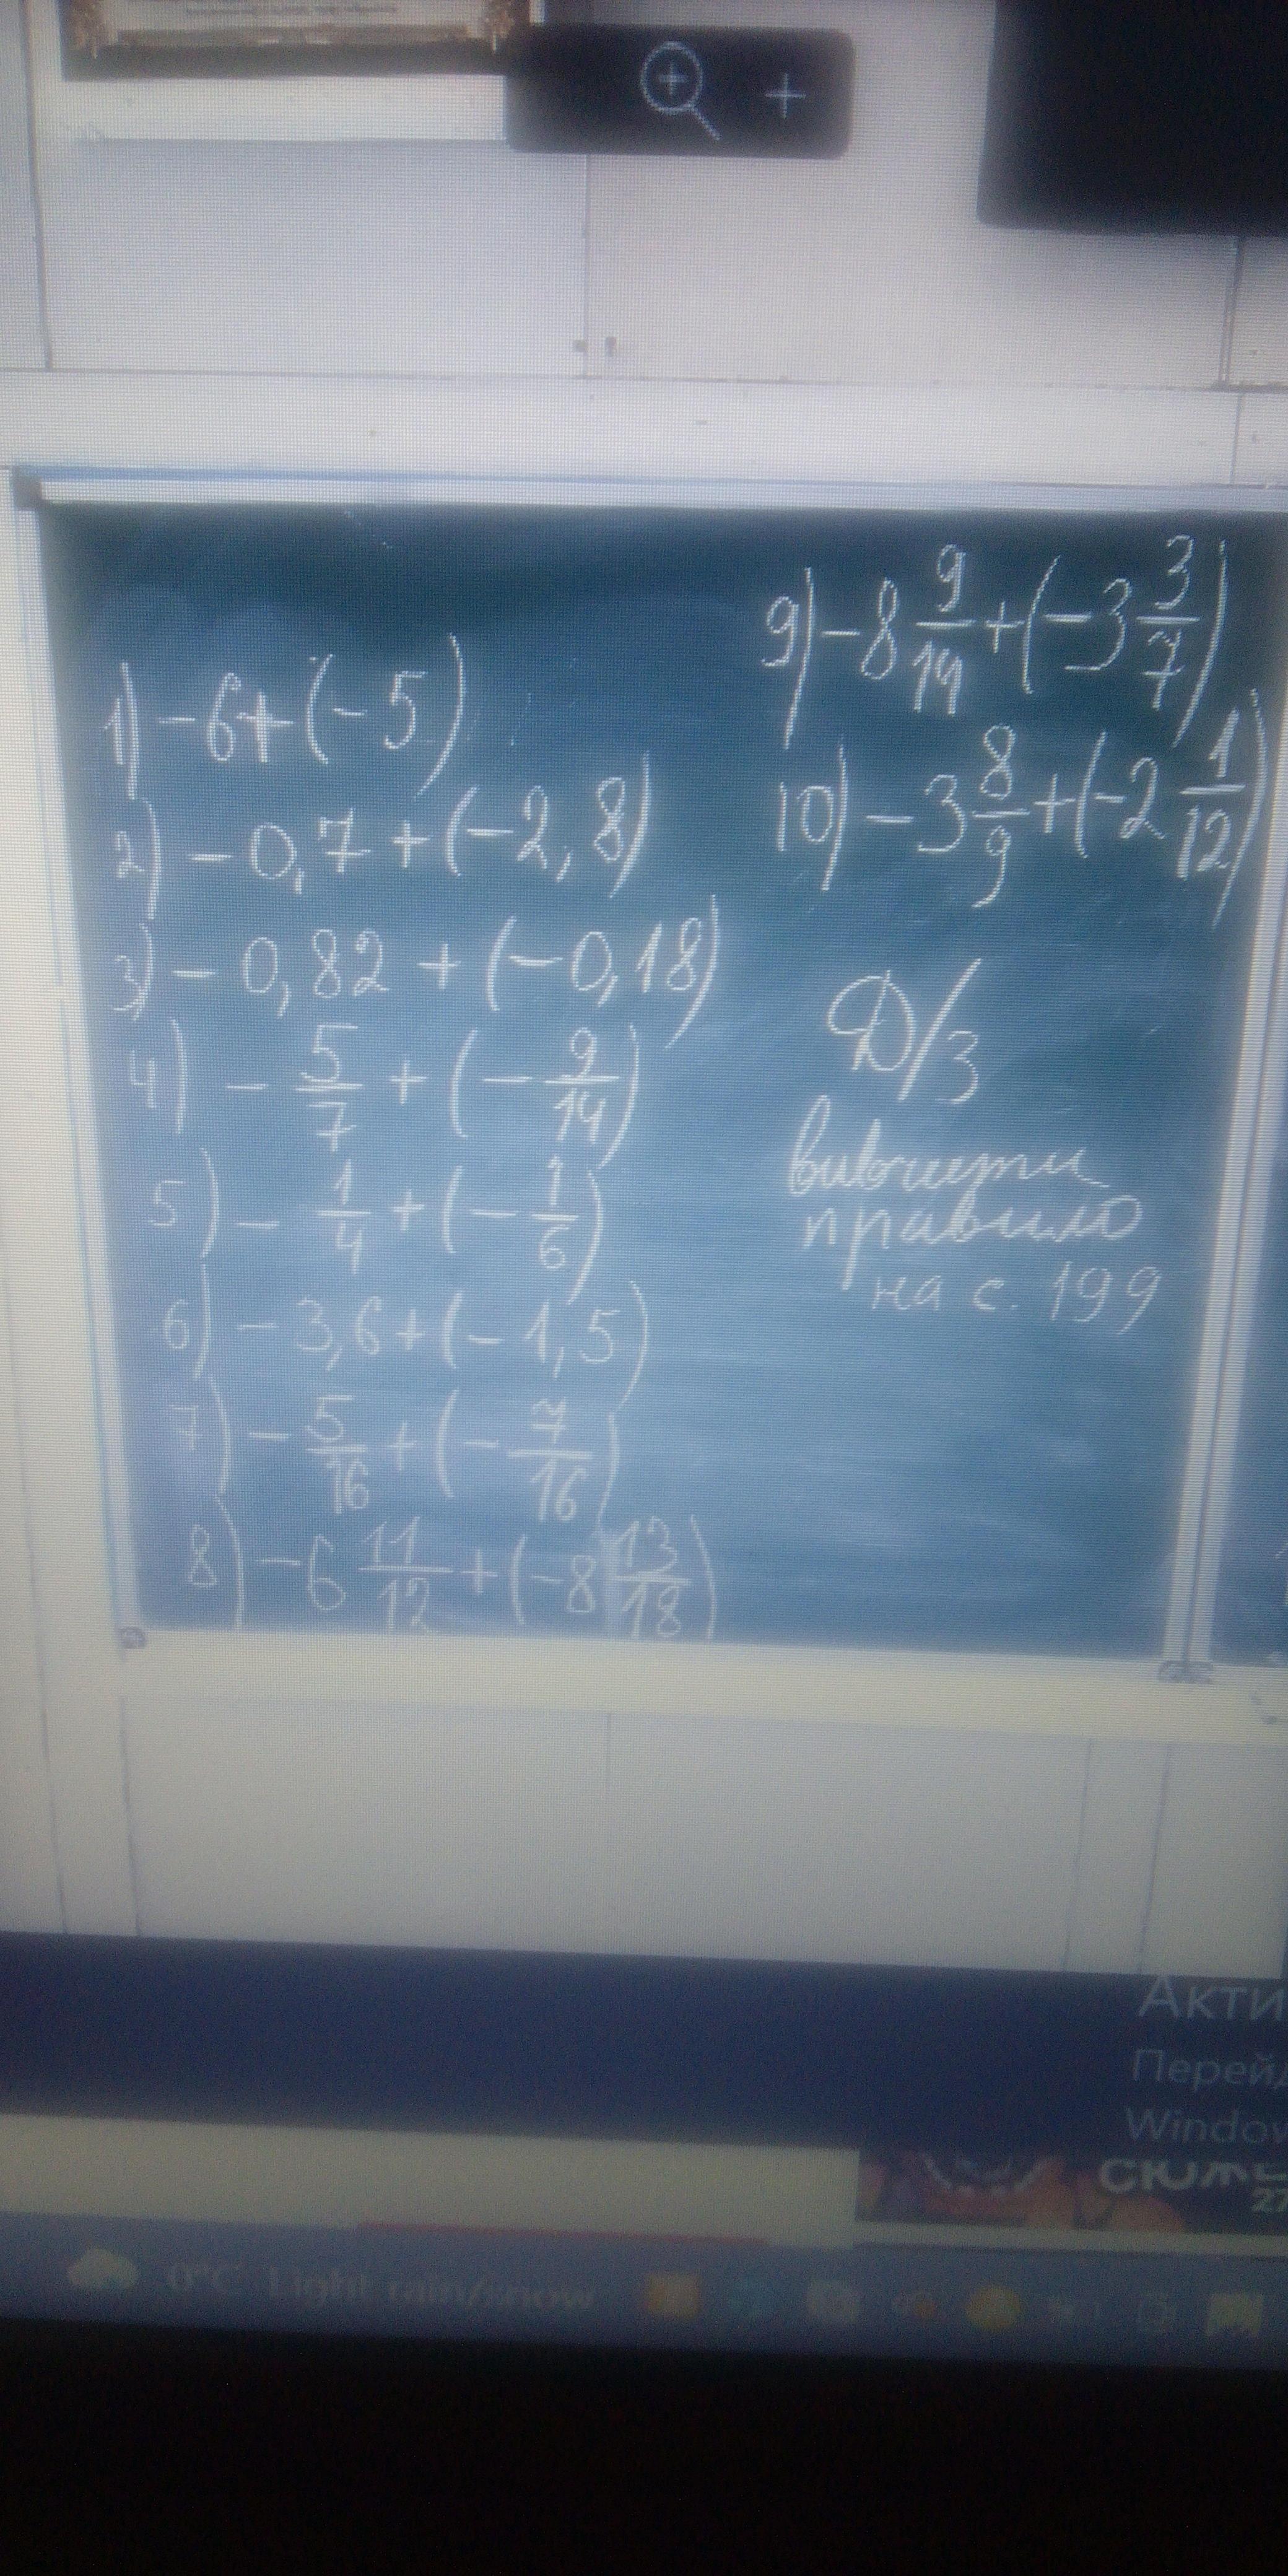 1) -6+(-5)
2) -0,7+(-2,8)
3) -0,82+(-0,18)
4) -5/7+(-9/14)
5) -1/4+(-1/6)
6) -3,6+(-1,5)
7) -5/16+(-7/16)
8) -6 11/12+(-8 13/18)
9) -8 9/14+(-3 3/7)
10) -3 8/9+(-2 1/12)
Д/З
вивчити
правило
на с. 199
Акти
Перейд
Window
27
0°C Light rain/snow